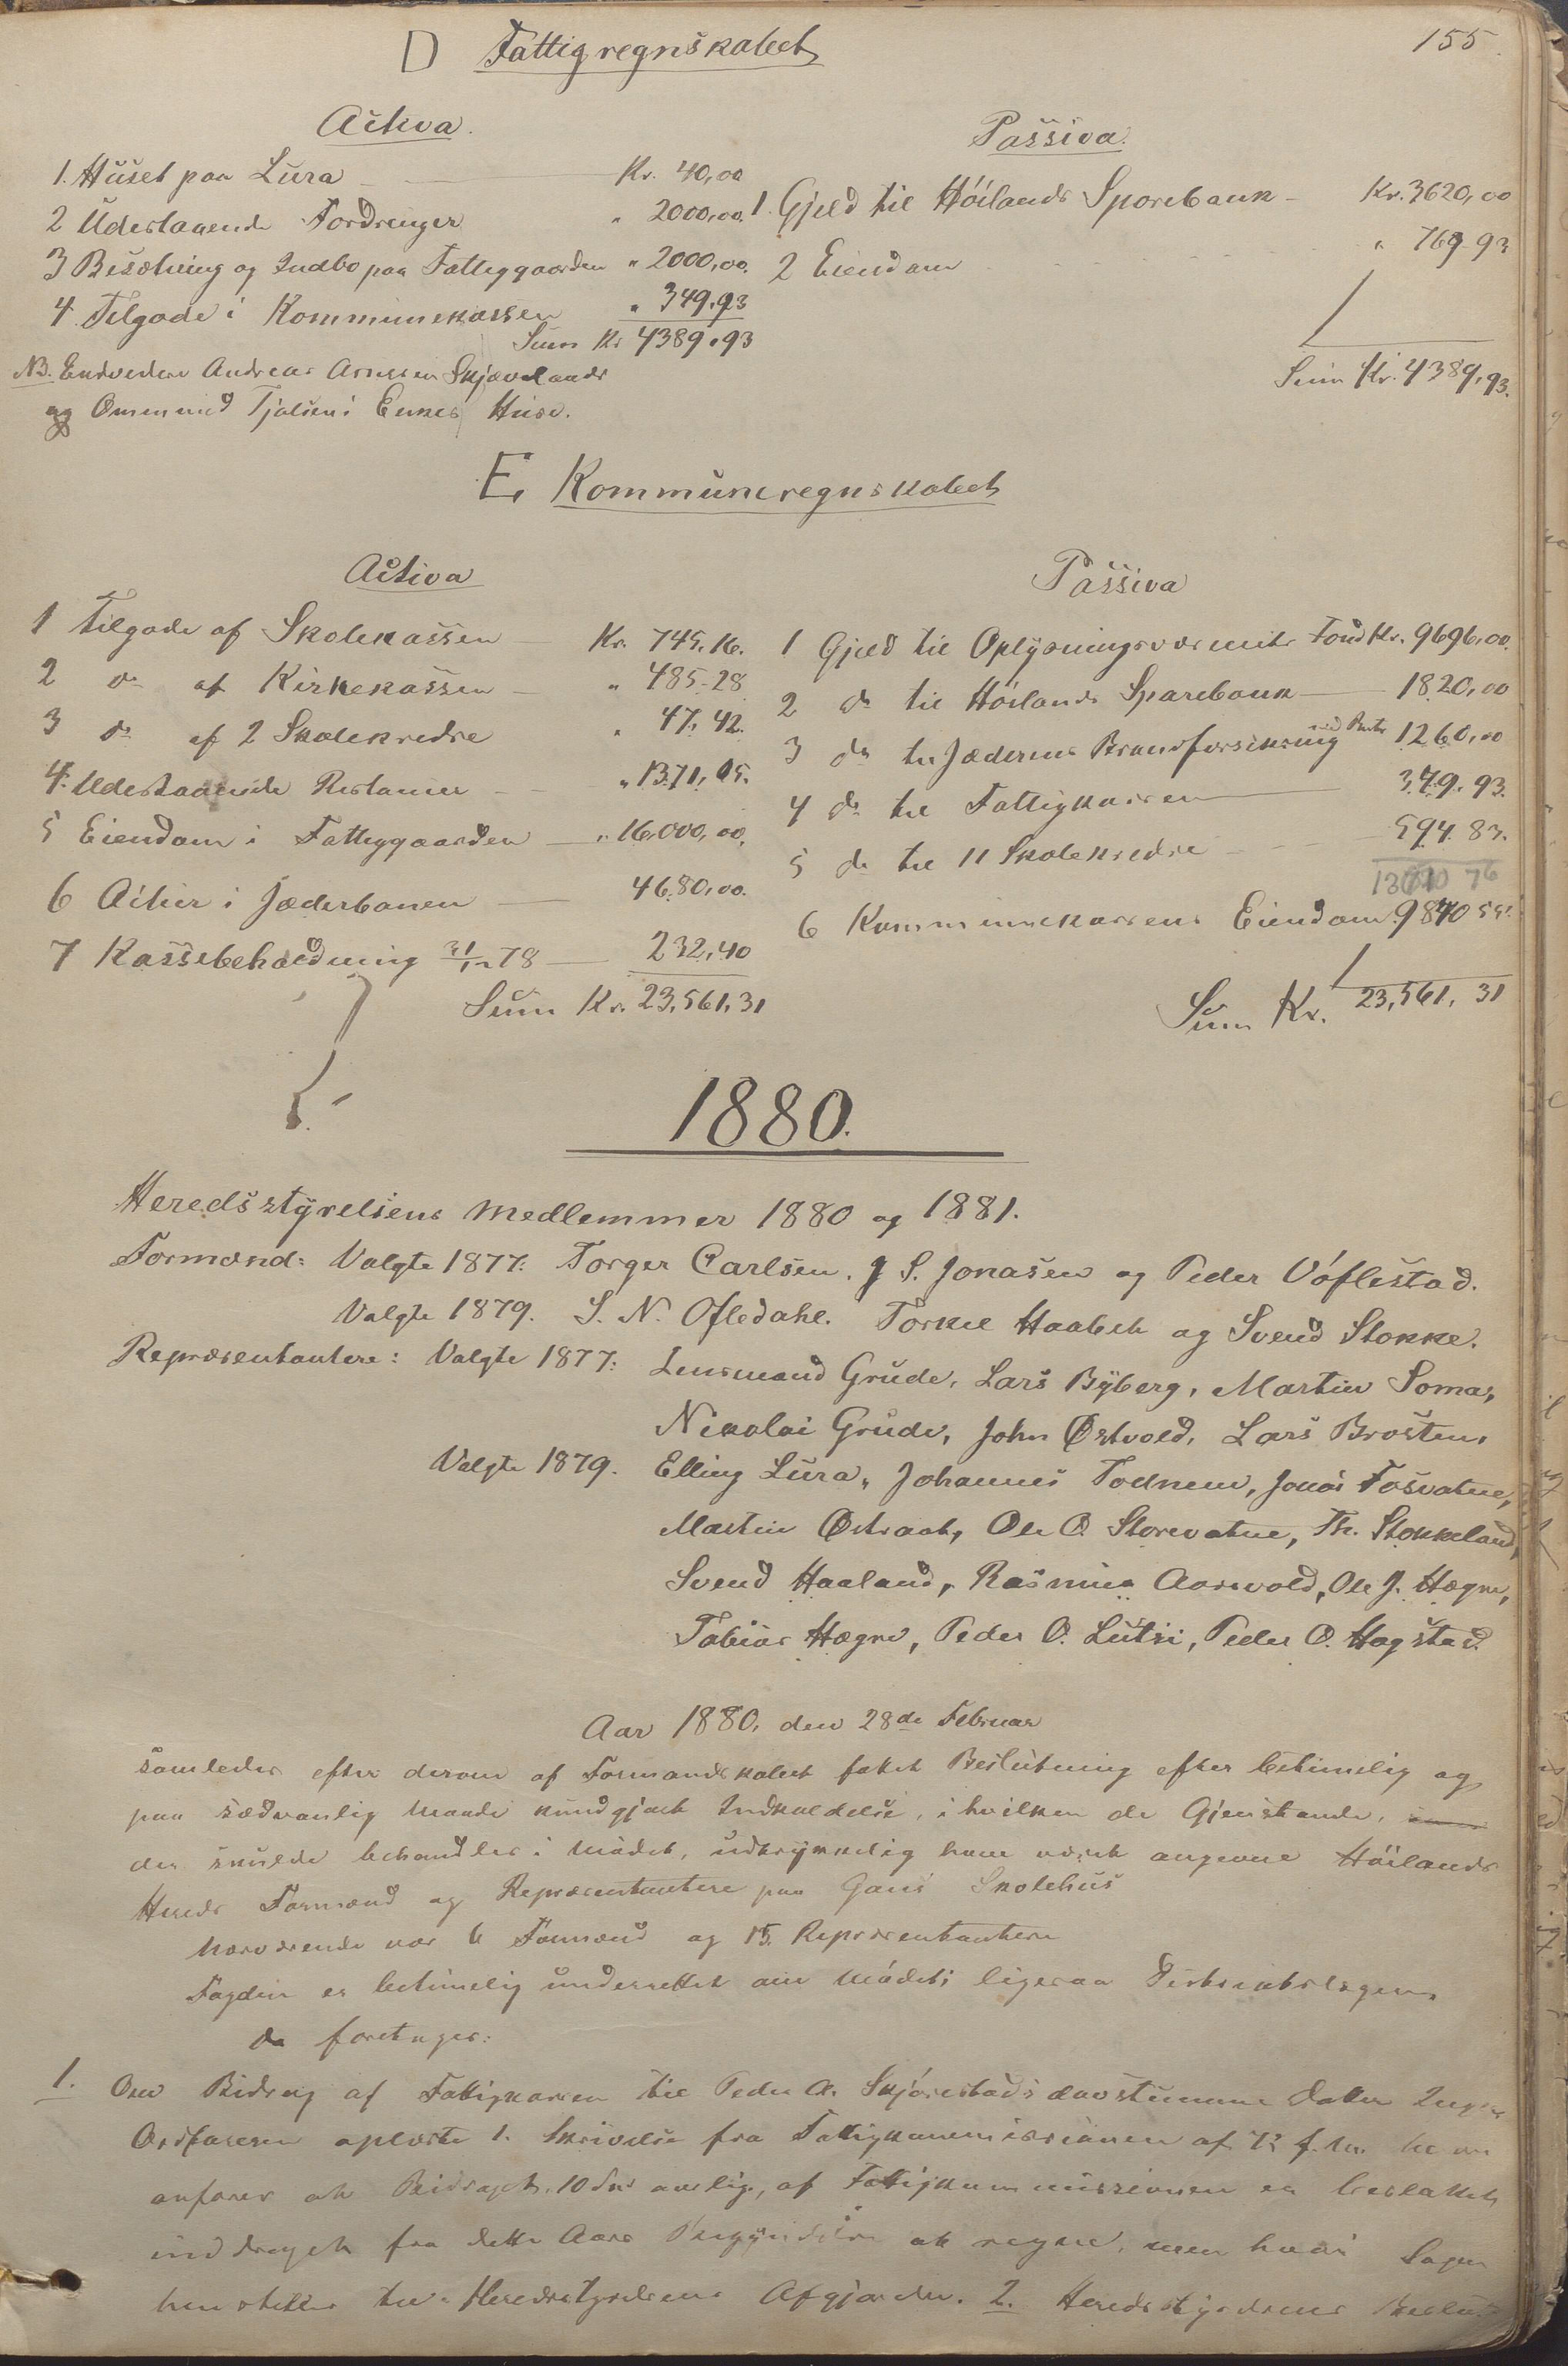 155.
D Fattigregnskabet
Activa.
1. Huset paa Lura Kr. 40,00
2 Udestaaende Fordringer " 2000,00.
3 Besætning og Indbo paa Fattiggaarden " 2000,00.
4. Tilgode i Kommunekassen " 349,93
Sum Kr 4389,93
NB. Endvidere Andreas Arnesen Skjævelands
og Ommund Tjølsen's Enkes Huse.
Passiva.
1. Gjeld til Höilands Sparebank - Kr. 3620,00
2 Eiendom " 769-93
Sum Kr. 4389,93.
E, Kommuneregnskabet
Activa
1 Tilgode af Skolekassen Kr. 745,16.
2 do af Kirkekassen " 485-28
3 do af 2 Skolekredse " 47,42.
4. Udestaaende Restancer " 1371,05.
5 Eiendom i Fattiggaarden " 16,000,00.
6 Actier i Jæderbanen 4680,00.
7 Kassebeholdning 31/12 78 232,40
Sum Kr. 23,561,31
Passiva
1 Gjeld til Oplysningsvæsenets Fond Kr. 9696,00.
2 do til Höilands Sparebank 1820,00
3 do til Jæderens Brandforsikring med Renter 1260,00
4 do til Fattigkassen 349,93.
5 do til 11 Skolekredse 594.83.
13720 76
6 Kommunekassens Eiendom 9840 55
Sum Kr. 23,561,31
1880.
Heredsstyrelsens Medlemmer 1880 og 1881.
Formænd: Valgte 1877: Torger Carlsen. J S. Jonasen og Peder Vóflestad.
Valgte 1879. S. N. Ofledahl. Torkel Haabeth og Svend Stokke.
Repræsentantere: Valgte 1877: Lensmand Grude, Lars Byberg, Martin Soma,
Nikolai Grude, John Østvold, Lars Brosten,
Valgte 1879. Elling Lura, Johannes Todnem, Jonas Fosvatne,
Martin Østraat, Ole O. Storevatne, Th. Stokkeland,
Svend Haaland, Rasmus Aarsvold, Ole J. Høgne,
Tobias Høgne, Peder O. Lutsi, Peder O. Hogstad.
Aar 1880, den 28de Februar
samledes efter derom af Formandskabet fattet Beslutning efter betimelig og
paa sædvanlig Maade kundgjort Indkaldelse, i hvilken de Gjenstande,
der skulde behandles i Mödet, udtrykkelig have været angivne Höilands
Hereds Formænd og Repræsentantere paa Gans Skolehus
Nærværende var 6 Formænd og 15 Repræsentantere
Fogden er betimelig underrettet om Mödet; ligesaa Distriktslægen.
da foretages:
1. Om Bidrag af Fattigkassen til Peder A. Skjörestads døvstumme Datter Inger
Ordføreren oplæste 1. Skrivelse fra Fattigkommissionen af 12 f. M. hvori
anføres at Bidraget, 10 Kr aarlig, af Fattigkommissionen er besluttet
inddraget fra dette Aars Begyndelse at regne, men hvori Sagen
henstilles til Heredsstyrelsens Afgjørelse. 2. Heredsstyrelsens Beslut-